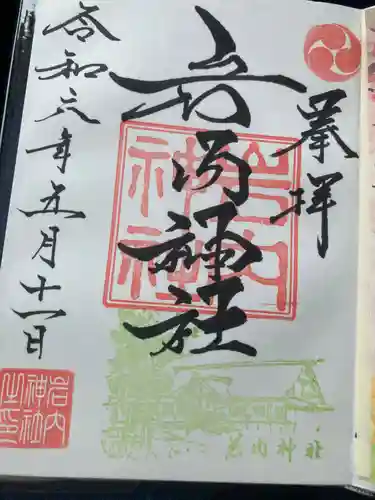 奉拝
岩内神社
岩内神社
令和六年五月十一日
岩内神社之印
岩内神社